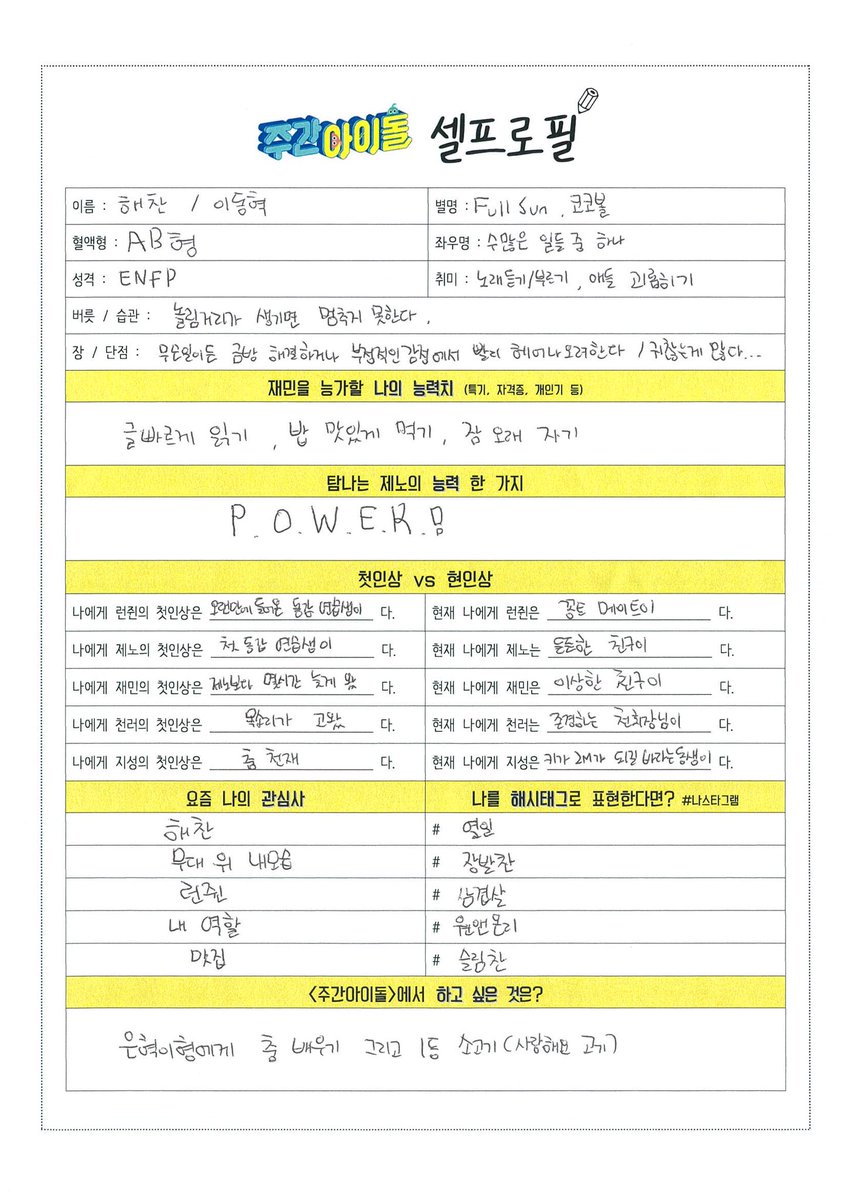 주간아이돌 셀프로필
이름 : 해찬 / 이동혁
별명 : Full Sun , 코코볼
혈액형 : AB형
좌우명 : 수많은 일들 중 하나
성격 : ENFP
취미 : 노래듣기/부르기 , 애들 괴롭히기
버릇 / 습관 : 놀림거리가 생기면 멈추지 못한다 .
장 / 단점 : 무슨일이든 금방 해결하거나 부정적인감정에서 빨리 헤어나오려한다 / 귀찮는게 많다...
재민을 능가할 나의 능력치 (특기, 자격증, 개인기 등)
글빠르게 읽기 , 밥 맛있게 먹기 , 잠 오래 자기
탐나는 제노의 능력 한 가지
P . O . W . E . R . 힘
첫인상 vs 현인상
나에게 런쥔의 첫인상은 오랜만에 들어온 동갑 연습생이 다.
현재 나에게 런쥔은 꽁트 메이트이 다.
나에게 제노의 첫인상은 첫 동갑 연습생이 다.
현재 나에게 제노는 든든한 친구이 다.
나에게 재민의 첫인상은 제노보다 몇시간 늦게 왔 다.
현재 나에게 재민은 이상한 친구이 다.
나에게 천러의 첫인상은 목소리가 고왔 다.
현재 나에게 천러는 존경하는 천회장님이 다.
나에게 지성의 첫인상은 춤 천재 다.
현재 나에게 지성은 키가 2M가 되길 바라는동생이 다.
요즘 나의 관심사
나를 해시태그로 표현한다면? #나스타그램
해찬
# 열일
무대 위 내모습
# 장발찬
런쥔
# 삼겹살
내 역할
# 원앤온리
맛집
# 슬림찬
<주간아이돌>에서 하고 싶은 것은?
은혁이형에게 춤 배우기 그리고 1등 소고기 (사랑해요 고기)